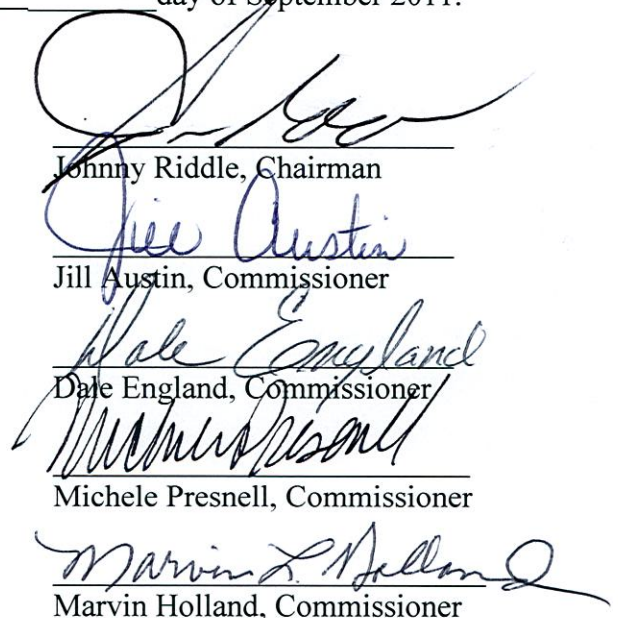 day of September 2011.
Johnny Riddle, Chairman
Jill Austin
Jill Austin, Commissioner
Dale England
Dale England, Commissioner
Michele Presnell
Michele Presnell, Commissioner
Marvin L. Holland
Marvin Holland, Commissioner